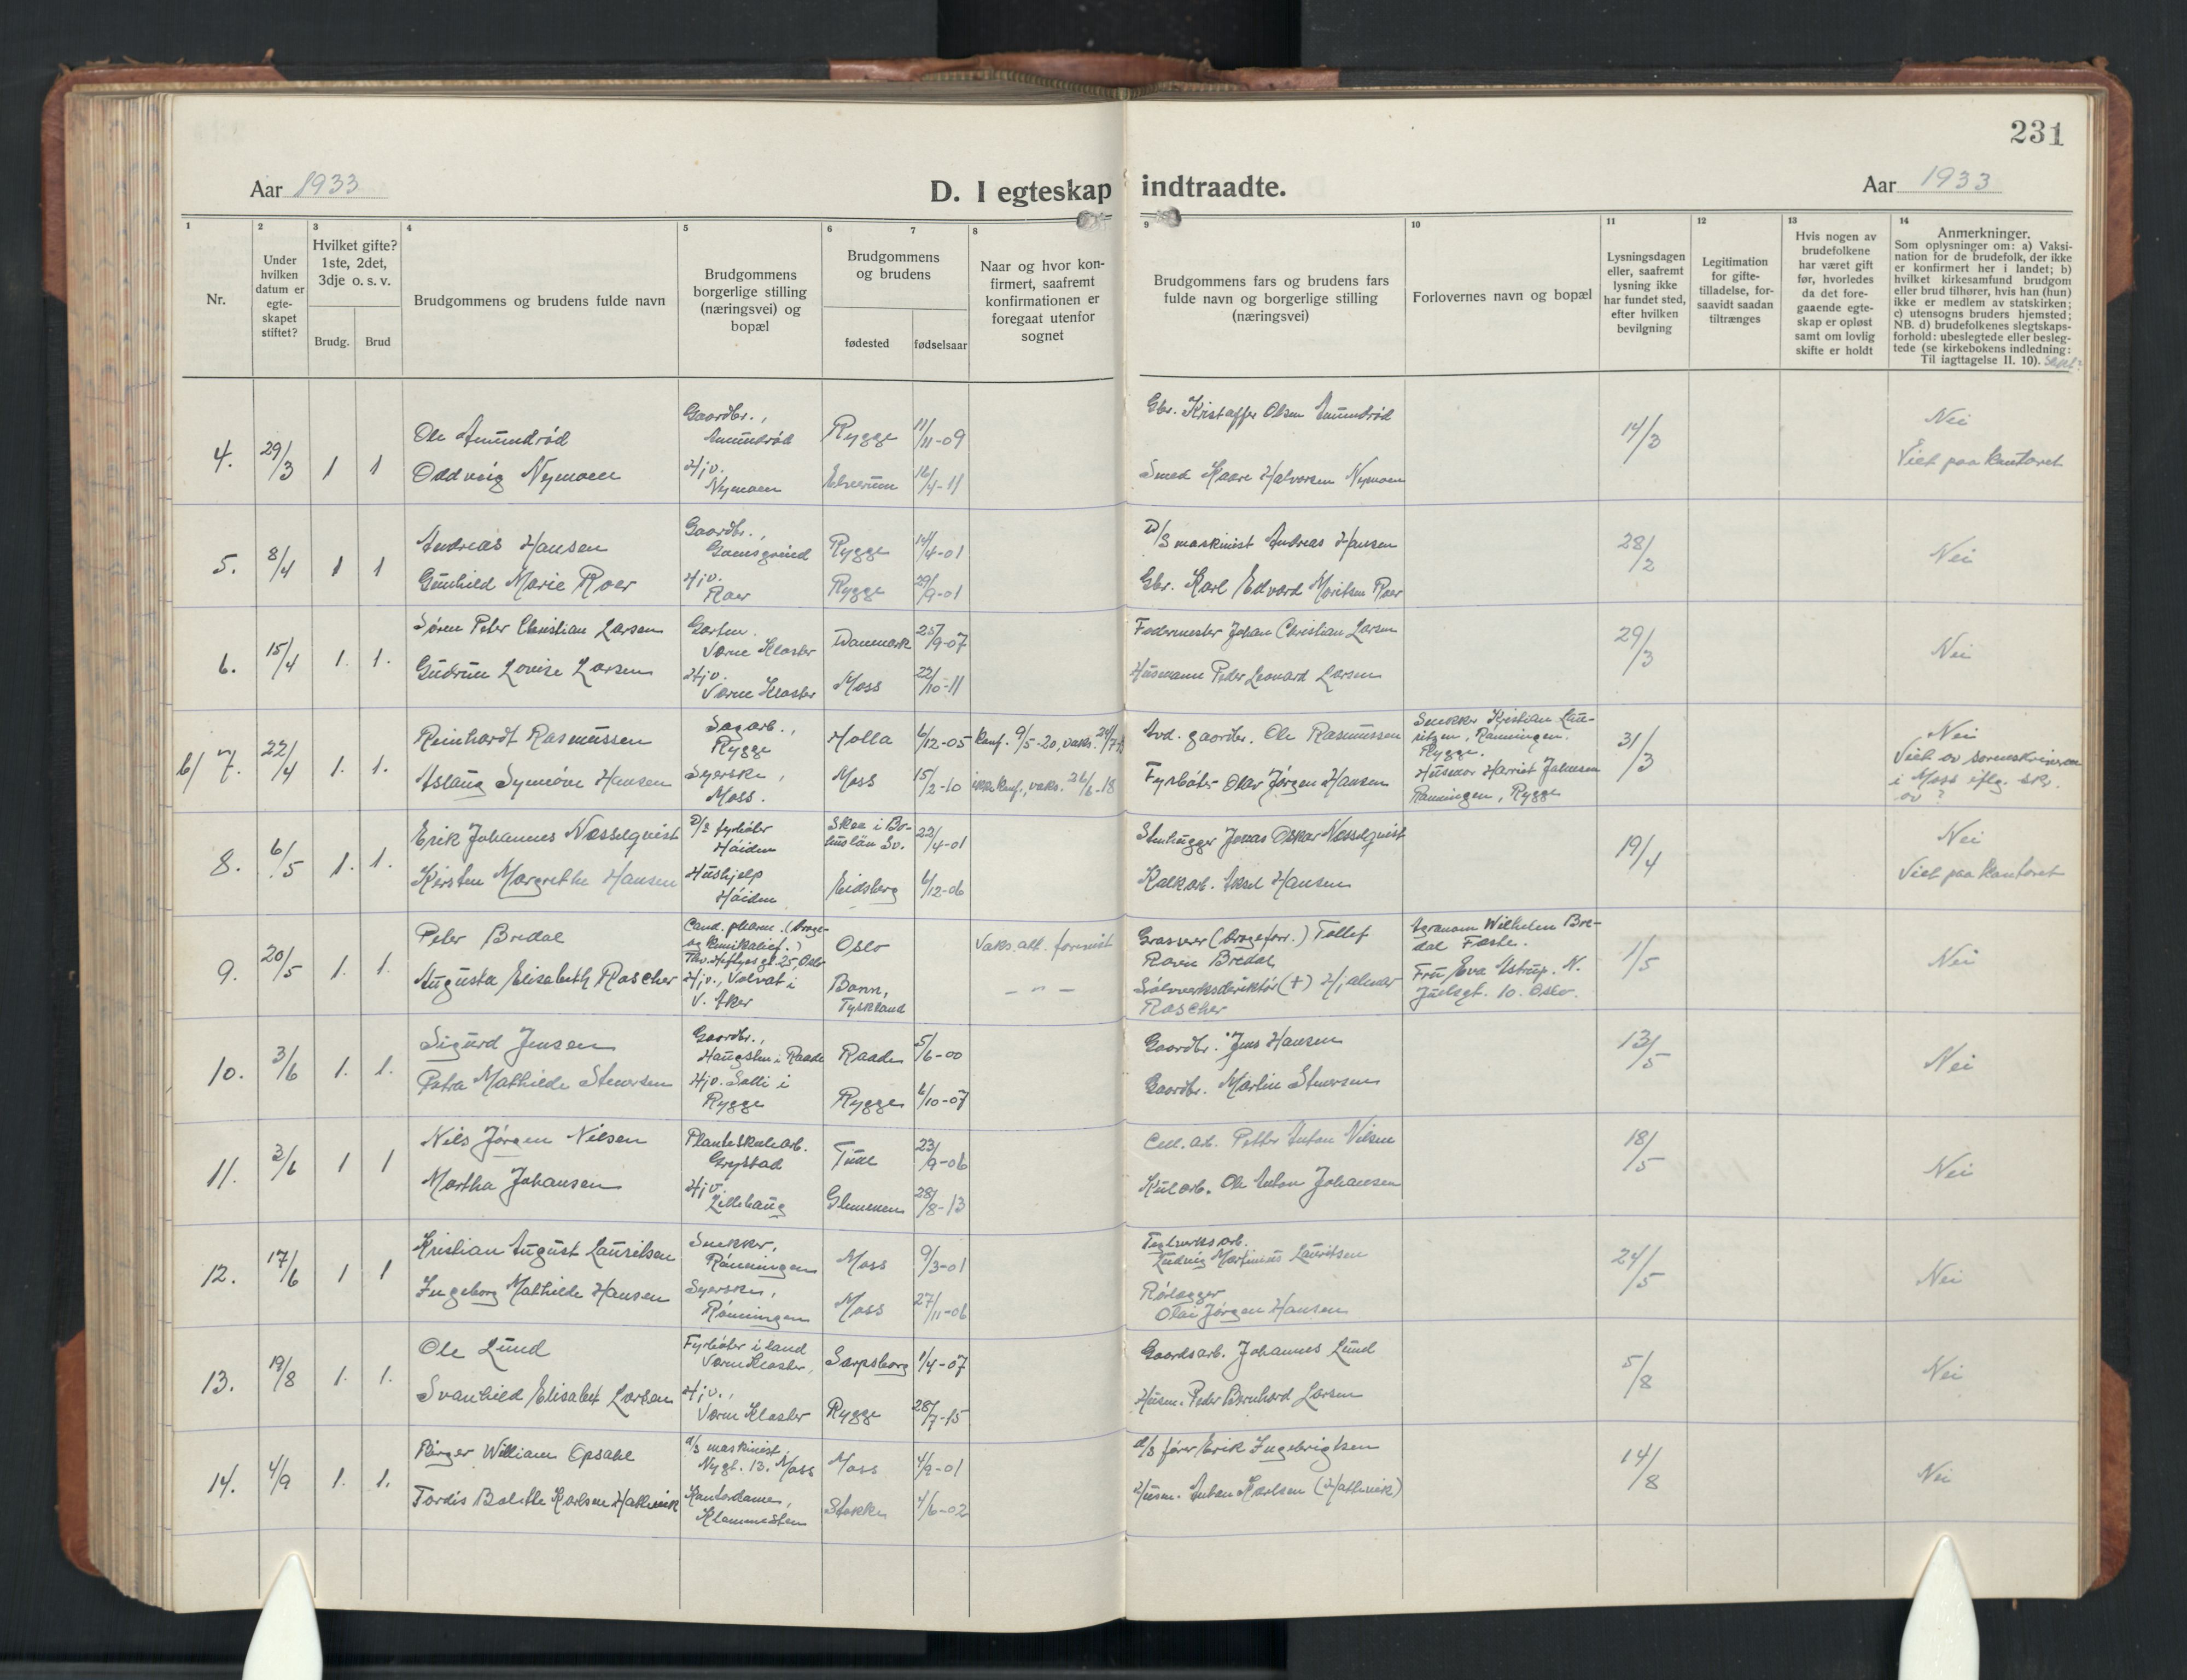 231
Aar 1933
D. I egteskap indtraadte.
Aar 1933
1
2
3
4
5
6
7
8
9
10
11
12
13
14
Nr.
Under
hvilken
datum er
egte-
skapet
stiftet?
Hvilket gifte?
1ste, 2det,
3dje o. s. v.
Brudg.
Brud
Brudgommens og brudens fulde navn
Brudgommens
borgerlige stilling
(næringsvei) og
bopæl
Brudgommens
og brudens
fødested
fødselsaar
Naar og hvor kon-
firmert, saafremt
konfirmationen er
foregaat utenfor
sognet
Brudgommens fars og brudens fars
fulde navn og borgerlige stilling
(næringsvei)
Forlovernes navn og bopæl
Lysningsdagen
eller, saafremt
lysning ikke
har fundet sted,
efter hvilken
bevilgning
Legitimation
for gifte-
tilladelse, for-
saavidt saadan
tiltrænges
Hvis nogen av
brudefolkene
har været gift
før, hvorledes
da det fore-
gaaende egte-
skap er opløst
samt om lovlig
skifte er holdt
Anmerkninger.
Som oplysninger om: a) Vaksi-
nation for de brudefolk, der ikke
er konfirmert her i landet; b)
hvilket kirkesamfund brudgom
eller brud tilhører, hvis han (hun)
ikke er medlem av statskirken;
c) utensogns bruders hjemsted;
NB. d) brudefolkenes slegtskaps-
forhold: ubeslegtede eller besleg-
tede (se kirkebokens indledning:
Til iagttagelse II. 10).
4. 29/3 1 1
Ole Amundrød
Gaardbr.,
Amundrød
Rygge 11/11-09
Gbr. Kristoffer Olsen Amundrød
14/3
Nei
Oddveig Nymoen
Hjv.
Nymoen
Elverum 16/4-11
Smed Kaare Halvorsen Nymoen
Viet paa kontoret
5. 8/4 1 1
Andreas Hansen
Gaardbr.,
Rygge 14/4-01
D/S maskinist Andreas Hansen
28/2
Nei
Gunhild Marie Roer
Hjv.
Roer
Rygge 29/9-01
Gbr. Karl Edvard Moritsen Roer
6. 15/4 1. 1.
Søren Peter Christian Larsen
Gartn.
Værne Kloster
Danmark 25/9-07
Fodermester Johan Christian Larsen
29/3
Nei
Gudrun Lovise Larsen
Hjv.
Værne Kloster
Moss 22/10-11
Husmann Peder Leonard Larsen
b/ 7. 22/4 1. 1.
Reinhardt Rasmussen
Sagarb.,
Rygge
Holla 6/12-05
konf. 9/5-20, vaks.
Avd. gaardbr. Ole Rasmussen
Snekker Kristian Lau-
ritzen, Rønningen,
Rygge.
31/3
Nei
Aslaug Synnøve Hansen
Syerske,
Moss.
Moss 15/2-10
ikke konf., vaks. 26/6-18
Fyrbøter Olav Jørgen Hansen
Husmor Harriet Johnsen
Rønningen, Rygge
Viet av sorenskriveren
i Moss iflg. skr.
av ?
8. 6/5 1. 1.
Erik Johannes Nesselqvist
D/S fyrbøter
Høiden
Skee i Bo-
huslän Sv. 22/4-01
Stenhugger Jonas Oskar Nesselqvist
19/4
Nei
Kirsten Margrethe Hansen
Hushjelp
Høiden
Eidsberg 6/12-06
Kalkarb. Aksel Hansen
Viet paa kontoret
9. 20/5 1. 1.
Peter Bredal
Cand. pharm. (Droge-
og kemikalief.)
Thv. Heftyes gt. 25, Oslo
Oslo
Vaks. att. forevist
Grosserer (Drogeforr.) Tollef
Ravn Bredal
Agronom Wilhelm Bre-
dal Feste.
1/5
Nei
Augusta Elisabeth Roscher
Hjv., Volvat i
V. Aker
Bonn,
Tyskland
— " —
Sølvverksdirektør (+) Hjalmar
Roscher
Fru Eva Astrup. N.
Juelsgt. 10. Oslo.
10. 3/6 1. 1.
Sigurd Jensen
Gaardbr.,
Haugsten i Raade
Raade 5/6-00
Gaardbr. Jens Hansen
13/5
Nei
Petra Mathilde Stenersen
Hjv. Salli i
Rygge
Rygge 6/10-07
Gaardbr. Martin Stenersen
11. 3/6 1 1
Nils Jørgen Nilsen
Planteskolearb.
Grystad
Tune 23/9-06
Cell. arb. Petter Anton Nilsen
18/5
Nei
Martha Johansen
Hjv.
Lillehaug
Glemmen 28/8-13
Kularb. Ole Anton Johansen
12. 17/6 1 1
Kristian August Lauritsen
Snekker,
Rønningen
Moss 9/3-01
Teglverksarb.
Ludvig Martinius Lauritsen
24/5
Nei
Ingeborg Mathilde Hansen
Syerske,
Rønningen
Moss 27/11-06
Rørlegger
Olai Jørgen Hansen
13. 19/8 1. 1.
Ole Lund
Fyrbøter i land
Værne Kloster,
Sarpsborg 1/4-07
Gaardsarb. Johannes Lund
5/8
Nei
Svanhild Elisabet Larsen
Hjv.,
Værne Kloster
Rygge 28/7-15
Husm. Peder Bernhard Larsen
14. 4/9 1. 1.
Birger William Opsahl
d/s maskinist,
Nygt. 13. Moss
Moss 4/9-01
d/s fører Erik Ingebrigtsen
14/8
Nei
Tordis Bolette Karlsen Hathvik
Kontordame,
Klommesten
Stokke 4/6-02
Husm. Anton Karlsen (Hathvik)